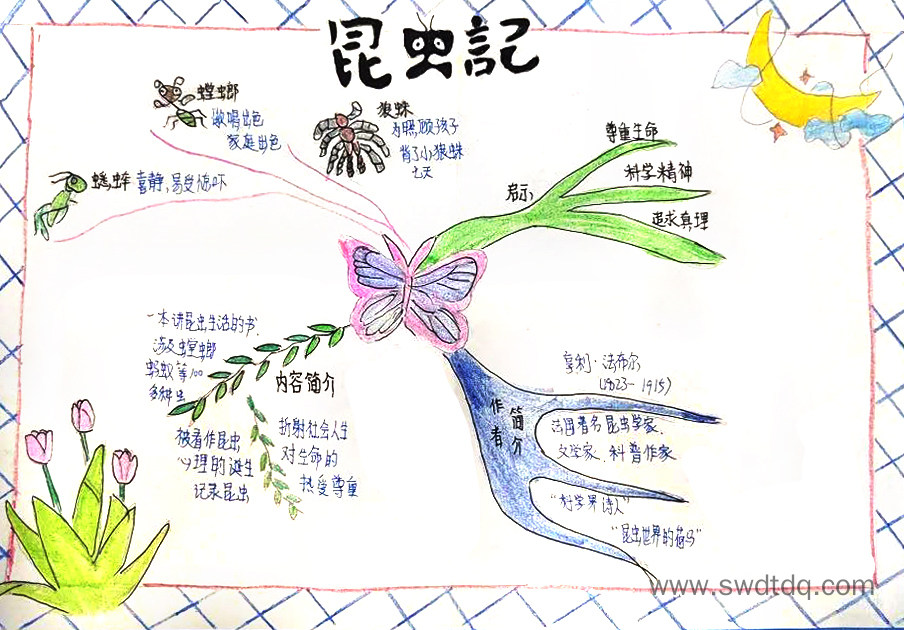 昆虫記
螳螂
歌唱出色
家庭出色
狼蛛
为照顾孩子
背了小狼蛛
七天
蟋蟀
喜静,易受惊吓
启示
尊重生命
科学精神
追求真理
一本讲昆虫生活的书.
涉及螳螂
蚂蚁等100
多种虫
内容简介
被看作昆虫
心理的诞生
记录昆虫
折射社会人生
对生命的
热爱尊重
作者
简介
亨利·法布尔
(1823-1915)
法国著名昆虫学家.
文学家.科普作家
“科学界诗人”
“昆虫世界的荷马”
www.swdtdq.com